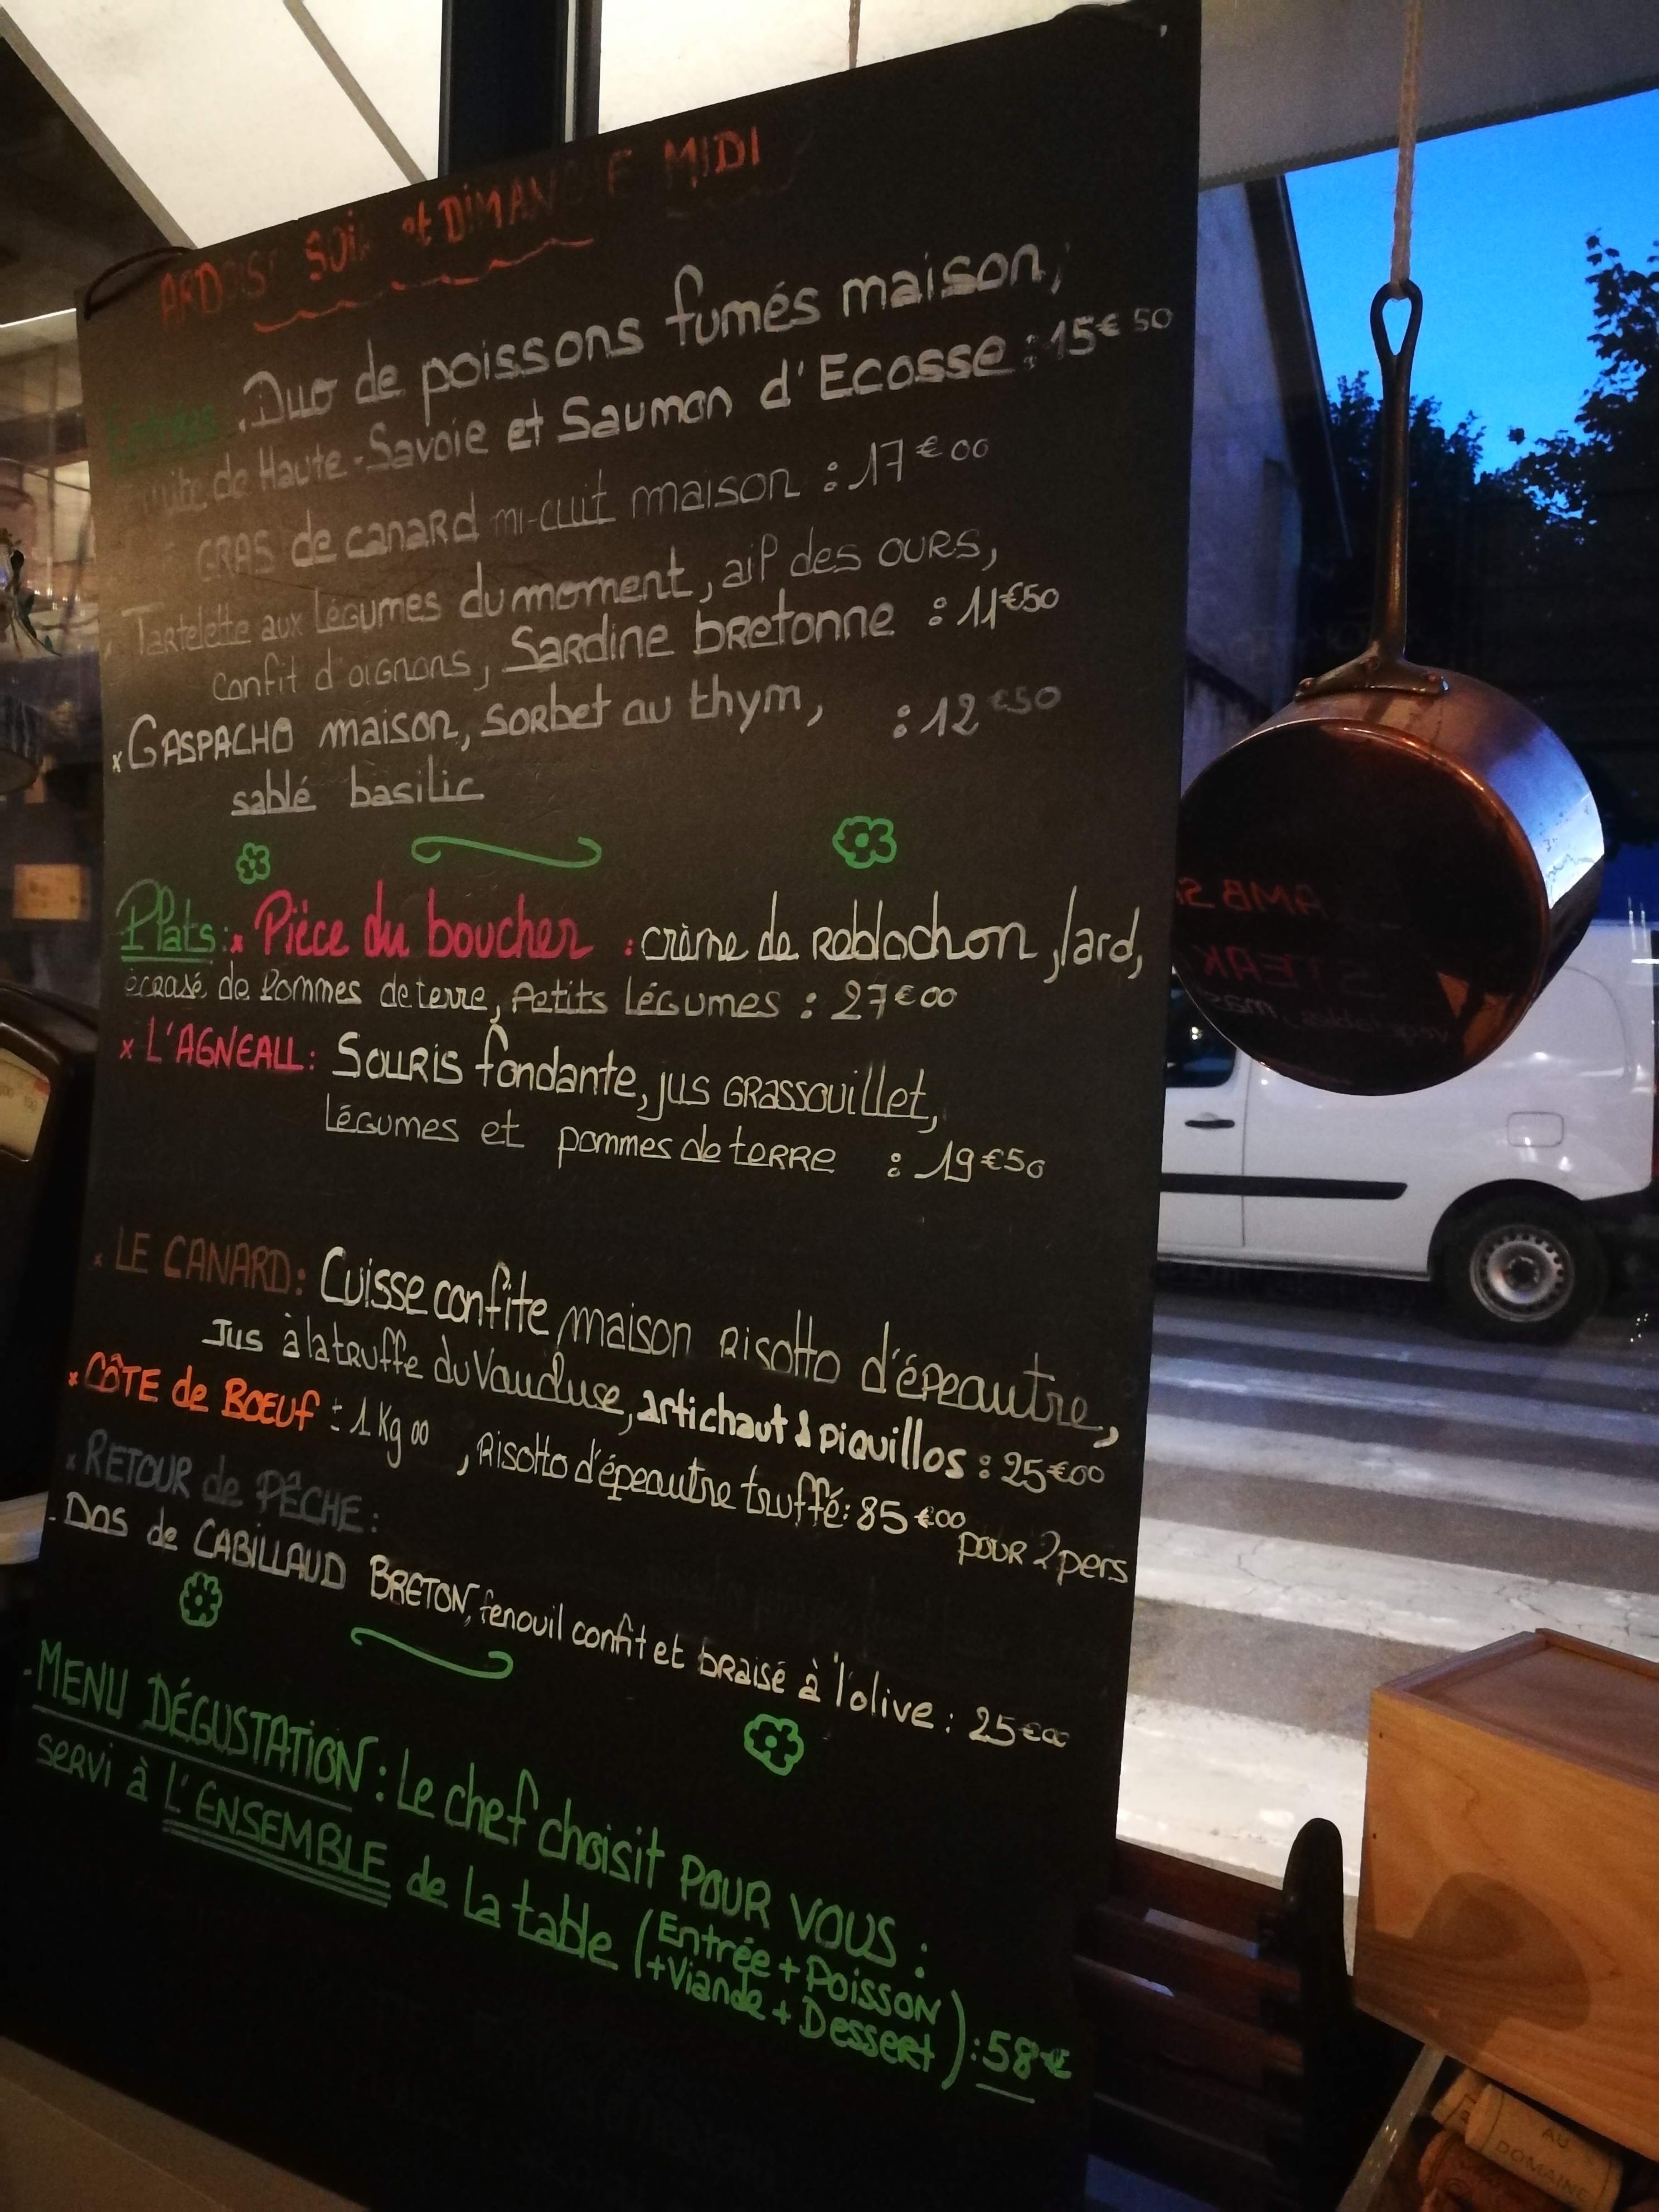 ARDOISE SOIR et DIMANCHE MIDI
Entrées: . Duo de poissons fumés maison,
truite de Haute-Savoie et Saumon d'Ecosse : 15€50
GRAS de canard mi-cuit maison : 17€00
. Tartelette aux légumes du moment, ail des ours,
confit d'oignons, Sardine bretonne : 11€50
x GASPACHO maison, sorbet au thym, : 12€50
sablé basilic
Plats: x Pièce du boucher : crème de Reblochon, lard,
écrasé de Pommes de terre, Petits Légumes : 27€00
x L'AGNEAU : SOURIS fondante, jus GRassouillet,
Légumes et pommes de terre : 19€50
x LE CANARD : Cuisse confite maison Risotto d'épeautre,
Jus à la truffe du Vaucluse, artichaut & piquillos : 25€00
x CÔTE de BOEUf ± 1 Kg 00, Risotto d'épeautre truffé : 85€00
pour 2 pers
x RETOUR de PÊCHE :
. Dos de CABILLAUD BRETON, fenouil confit et braisé à l'olive : 25€00
- MENU DÉGUSTATION : Le chef choisit POUR VOUS :
servi à L'ENSEMBLE de la table (Entrée + Poisson
+ Viande + Dessert) : 58€
AU
DOMAINE